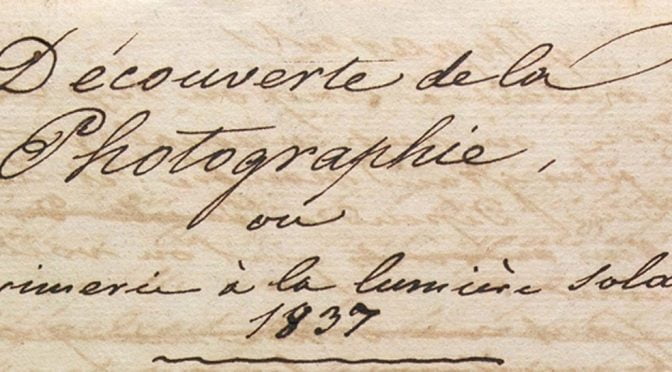 Découverte de la
Photographie,
ou
rimerie à la lumière sola
1837